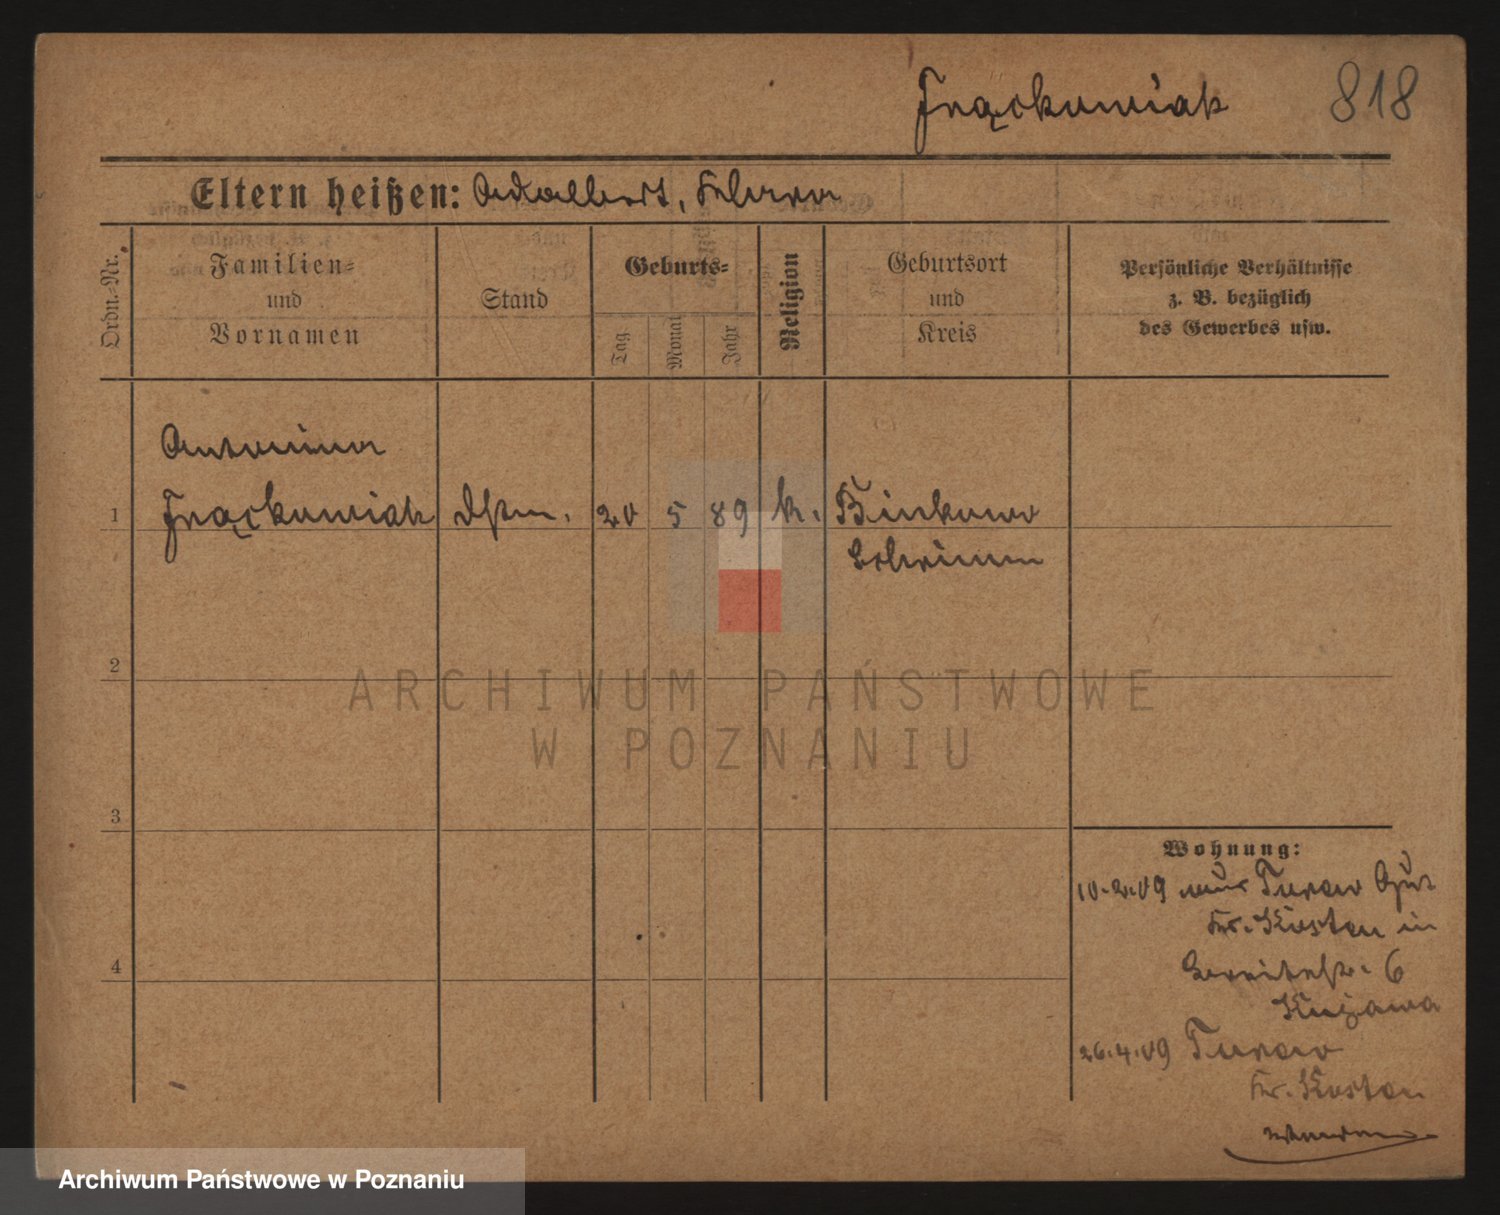 Frąckowiak 818
Eltern heißen: Adalbert,
Ordn.-Nr.
Familien-
und
Vornamen
Stand
Geburts-
Tag
Monat
Jahr
Religion
Geburtsort
und
Kreis
Persönliche Verhältnisse
z. B. bezüglich
des Gewerbes usw.
Antonina
1 Frąckowiak Dstm. 20 5 89 k. Binkowo
Schrimm
2
ARCHIWUM PAŃSTWOWE
W POZNANIU
3
Wohnung:
10.2.09 aus Turew Gut
Kr. Kosten in
6
Kujawa
4
26.4.09 Turew
Kr. Kosten
Archiwum Państwowe w Poznaniu